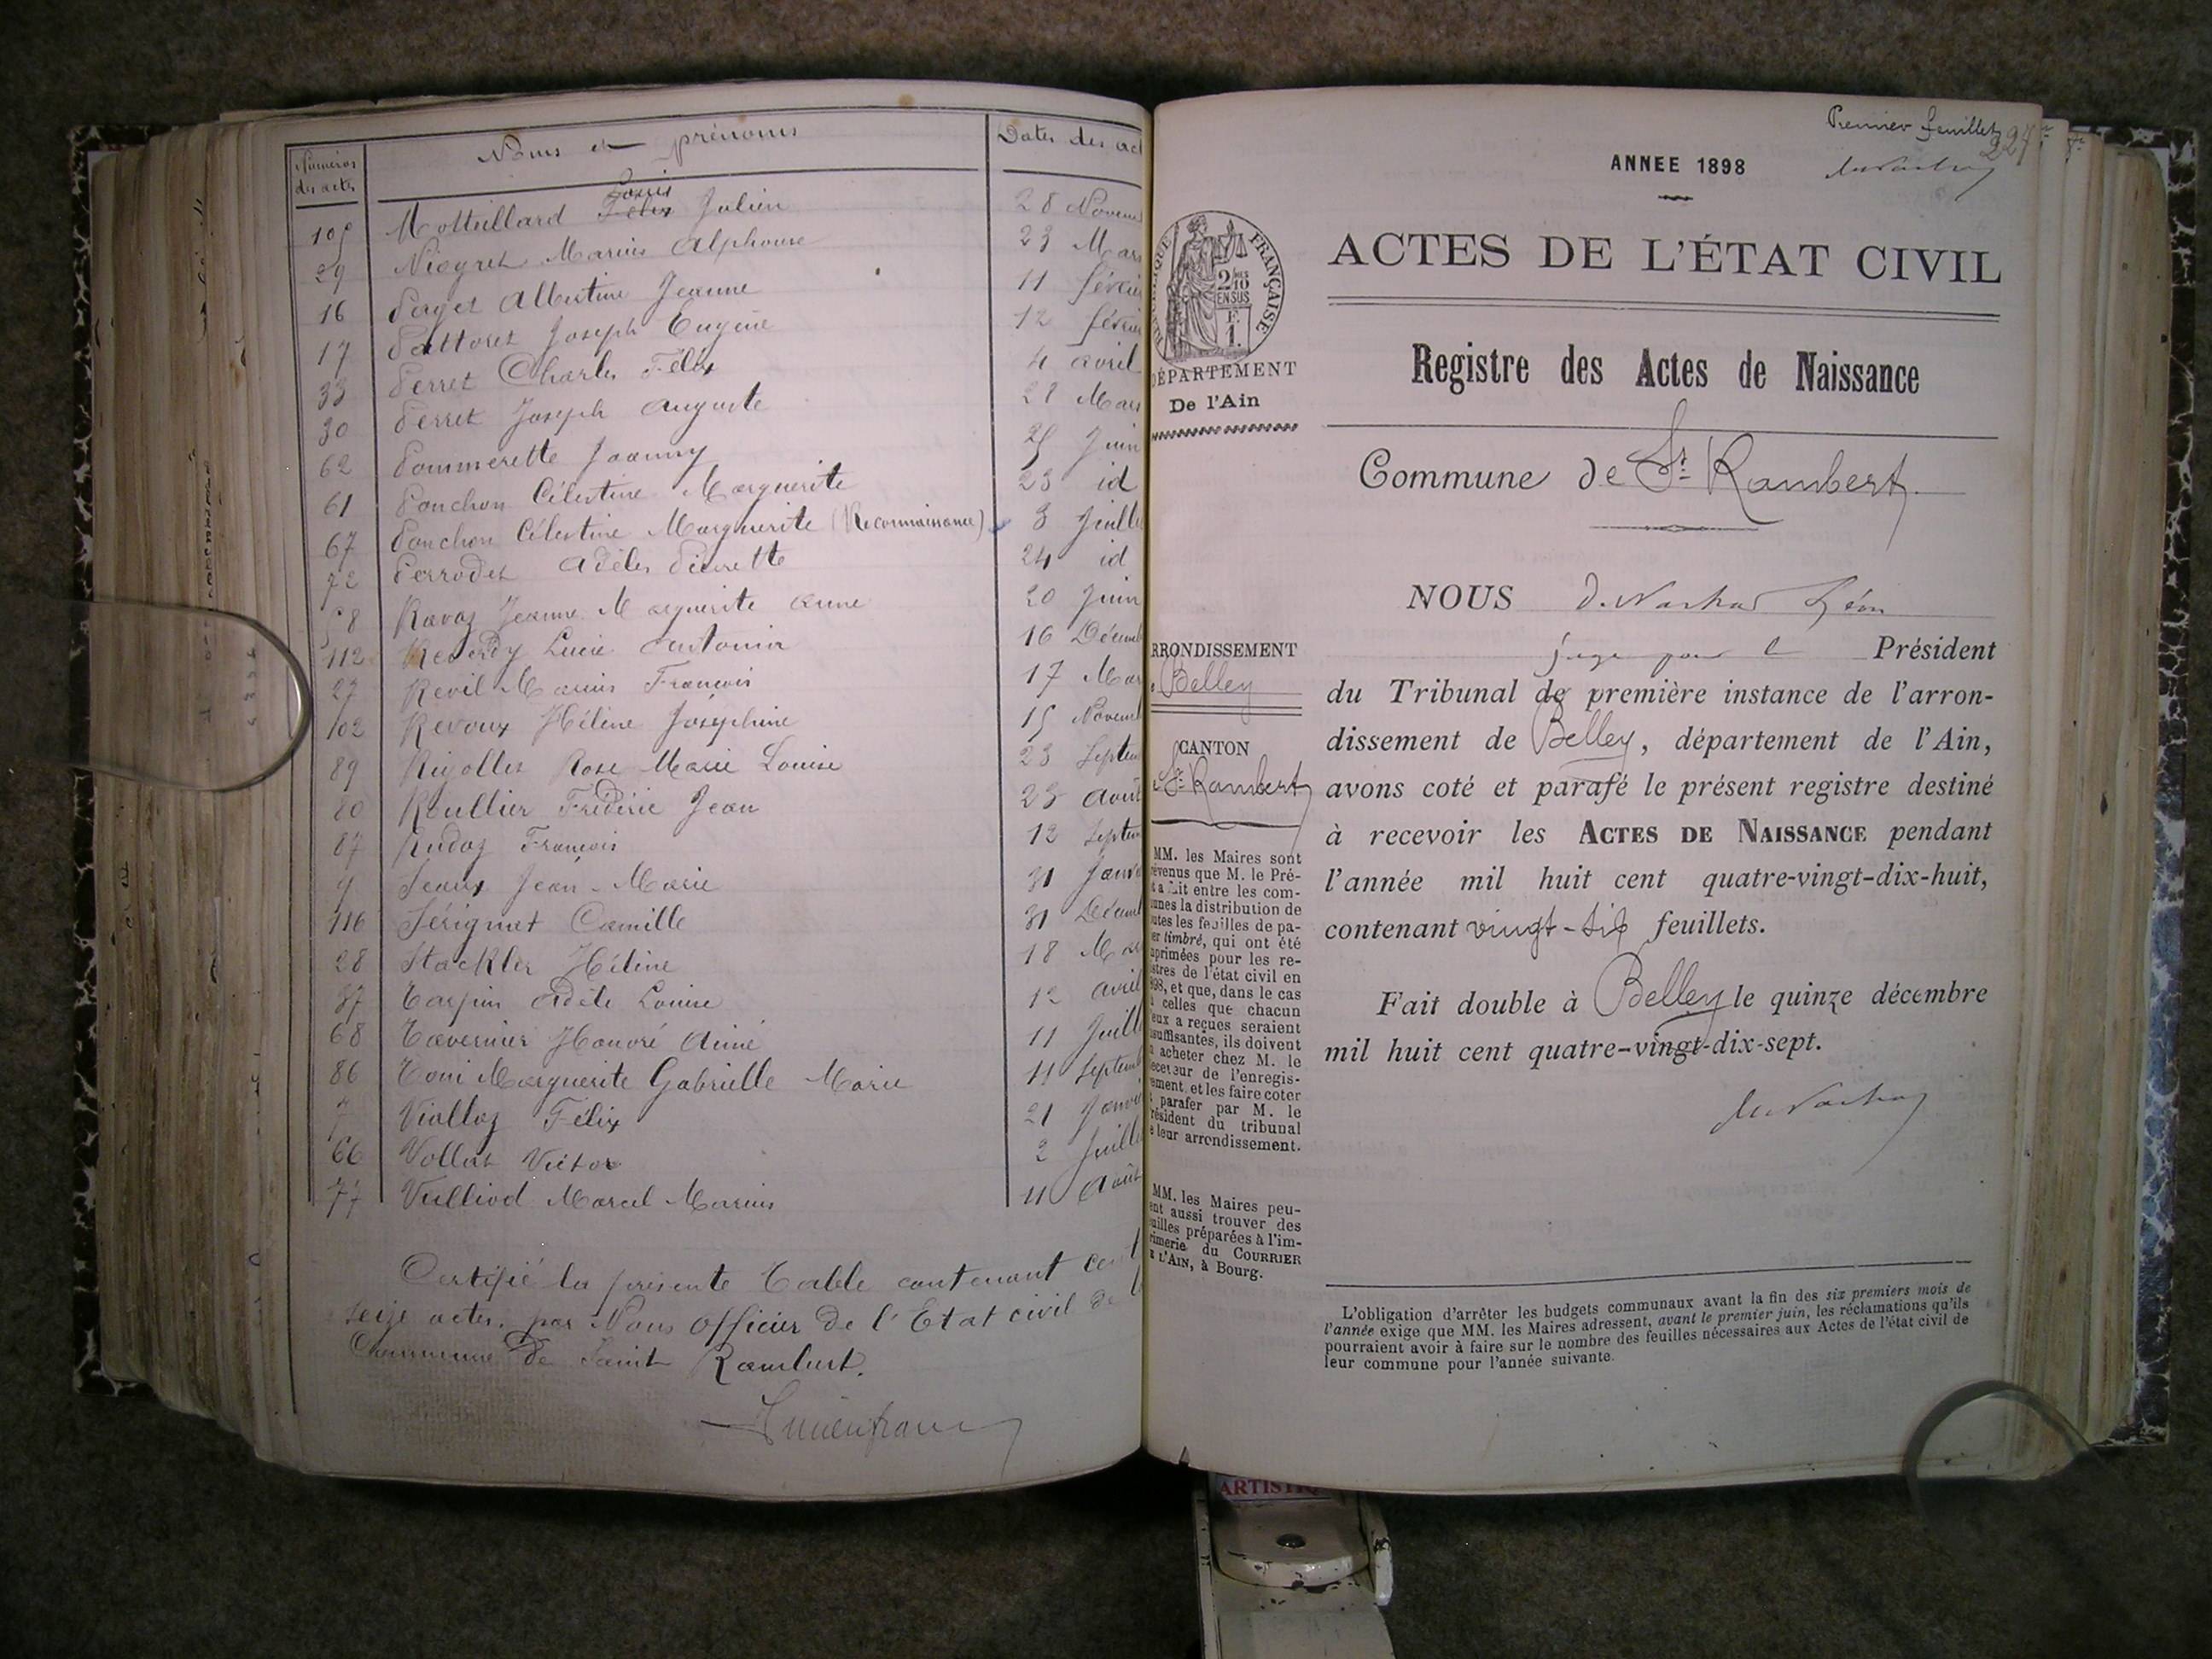 Numéros des actes Noms et prénoms Dates des act
105 Mottuillard Louis Felix Julien 28 Novem
29 Niogret Marius Alphonse 23 Mars
16 Paget Albertine Jeanne 11 février
17 Pattoret Joseph Eugène 12 février
33 Perret Charles Félix 4 avril
30 Perret Joseph Auguste 28 Mars
62 Pommerette Joanny 25 Juin
61 Ponchon Célestine Marguerite 23 id
67 Ponchon Célestine Marguerite (Reconnaissance) 3 Juille
72 Perrodet Adèle Pierrette 24 id
58 Ravaz Jeanne Marguerite Anne 20 Juin
112 Reverdy Lucie Antonia 16 Décemb
27 Revil Marius François 17 Mar
102 Revoux Hélène Joséphine 15 Novemb
89 Rigollet Rose Marie Louise 23 Septem
80 Roullier Fréderic Jean 23 Août
87 Rudaz François 12 Septem
9 Seaux Jean-Marie 31 Janv
116 Sérignat Camille 31 Décemb
28 Stackler Hélène 18 Mar
37 Tarpin Adèle Louise 12 avril
68 Tavernier Honoré Aimé 11 Juill
86 Toni Marguerite Gabrielle Marie 11 Septemb
7 Viallaz Félix 21 Janvi
66 Vollat Victor 2 Juille
77 Vulliod Marcel Marius 11 Août
Certifié la présente Table contenant cent
seize actes. par Nous Officier de l'Etat civil de
Commune de Saint Rambert.
Premier feuillet
227
ANNEE 1898
ACTES DE L'ÉTAT CIVIL
Registre des Actes de Naissance
Commune de St. Rambert.
FRANÇAISE
2/10
EN SUS
F.
1.
DÉPARTEMENT
De l'Ain
RRONDISSEMENT
Belley
CANTON
St. Rambert
MM. les Maires sont
révenus que M. le Pré-
t a fait entre les com-
unes la distribution de
utes les feuilles de pa-
er timbré, qui ont été
mprimées pour les re-
istres de l'état civil en
898, et que, dans le cas
celles que chacun
eux a reçues seraient
suffisantes, ils doivent
acheter chez M. le
eceveur de l'enregis-
ement, et les faire coter
parafer par M. le
résident du tribunal
e leur arrondissement.
MM. les Maires peu-
ent aussi trouver des
uilles préparées à l'im-
rimerie du COURRIER
E L'AIN, à Bourg.
NOUS Léon
juge pour le Président
du Tribunal de première instance de l'arron-
dissement de Belley, département de l'Ain,
avons coté et parafé le présent registre destiné
à recevoir les ACTES DE NAISSANCE pendant
l'année mil huit cent quatre-vingt-dix-huit,
contenant vingt-six feuillets.
Fait double à Belley le quinze décembre
mil huit cent quatre-vingt-dix-sept.
L'obligation d'arrêter les budgets communaux avant la fin des six premiers mois de
l'année exige que MM. les Maires adressent, avant le premier juin, les réclamations qu'ils
pourraient avoir à faire sur le nombre des feuilles nécessaires aux Actes de l'état civil de
leur commune pour l'année suivante.
ARTISTIQ